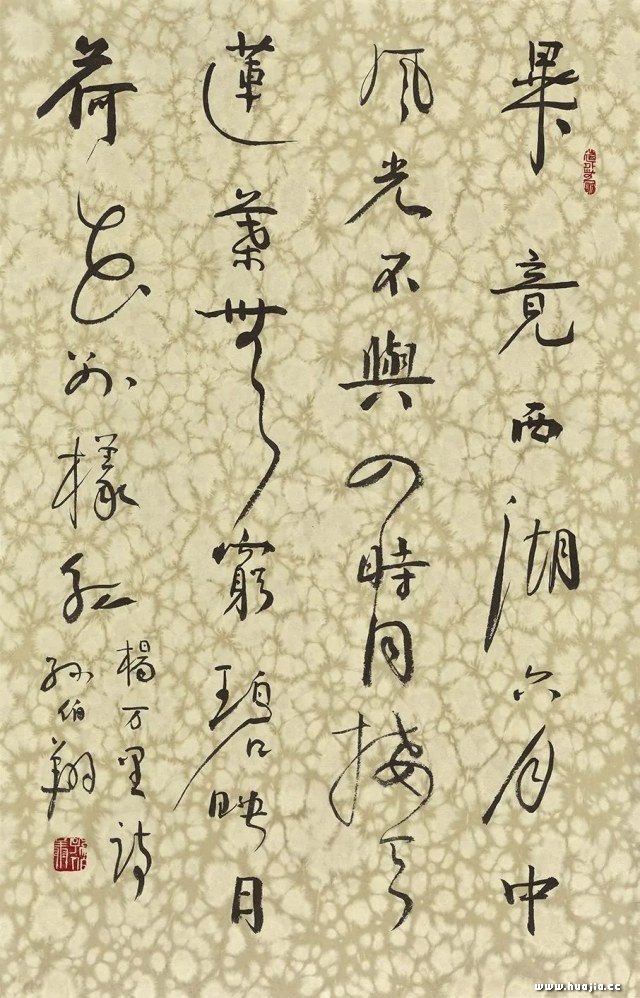 畢竟西湖六月中
風光不與四時同接天
蓮葉無窮碧映日
荷花別樣紅
楊万里詩
孫伯翔
www.huajia.cc